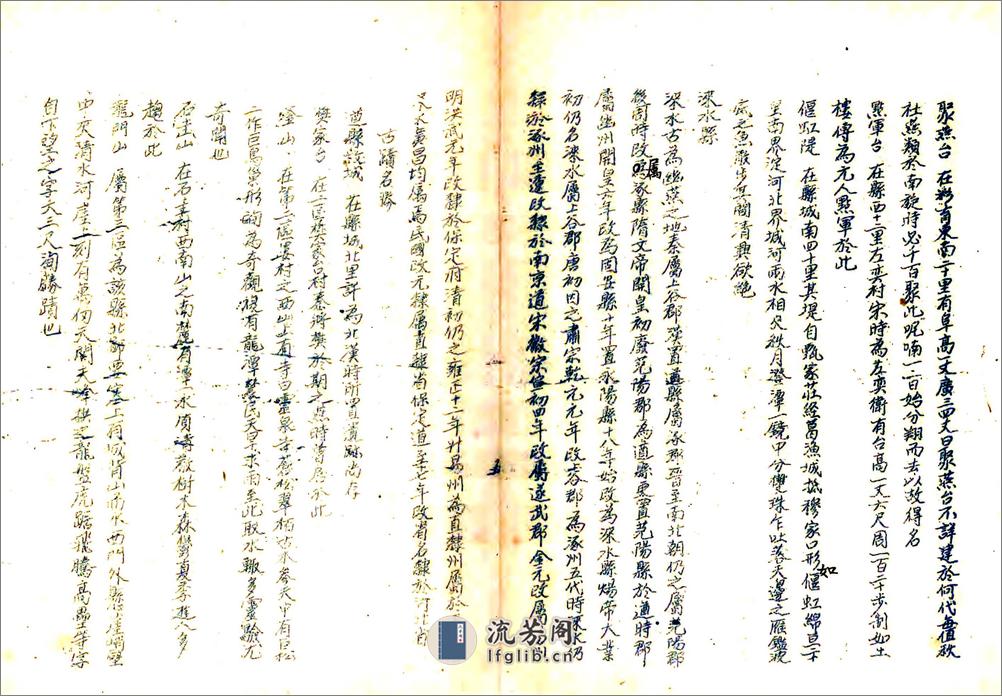 聚燕台 在縣治東南二十里有阜高一丈廣三四丈曰聚燕台不詳建於何代每值秋
社燕類於南旋時必千百聚此呢喃一日始分翔而去以故得名
點軍台 在縣西十二里左奕村宋時為左奕衛有台高一丈六尺周一百二十步制如土
樓傳為元人點軍於此
偃虹堤 在縣城南四十里其堤自甄家莊經葛漁城抵穆家口形如偃虹綿亘三十
里南界淀河北界城河兩水相夾秋月澄潭一鏡中分雙珠乍吐落天邊之雁
底之魚漵步其間清興欲絕
淶水縣
淶水古為幽燕之地秦屬上谷郡漢置遒縣屬涿郡晉至南北朝仍之屬范陽郡
後周時改屬涿縣隋文帝開皇初廢范陽郡為遒縣更置范陽縣於遒時郡
屬幽州開皇六年改為固安縣十年置永陽縣十八年始改為淶水縣煬帝大業
初仍名淶水屬上谷郡唐初因之肅宗乾元元年改谷郡為涿州五代時淶水仍
隸於涿州至遼改隸於南京道宋徽宗宣和四年改屬遂武郡金元改屬
明洪武元年改隸於保定府清初仍之雍正十二年升易州為直隸州屬於
均屬焉民國政元隸屬直隸省保定道至十七年改省名隸於河北省
古蹟名勝
遒縣故城 在縣城北里許為北漢時所置遺跡尚存
樊家台 在一區樊家台村秦將樊於期之燕時曾居於此
在第二區婁村之西山上有寺曰靈泉古蒼松翠柏古木參天中有巨松
二作巨鳥巢形頗為奇觀澱有龍潭鄉民天旱求雨至此取水輒多靈驗尤
奇聞也
石圭山 在石圭村西南山之南麓有潭一水頃寺數樹木森鬱夏季遊人多
趨於此
龍門山 屬第三區為該縣北部上有城背山而水西門外懸崖峭壁
中夾清水河崖上刻有萬仞天關天險龍盤虎踞飛騰高疊等字
自下望之字大二尺洵勝蹟也
五
流芳阁
lfglib.cn